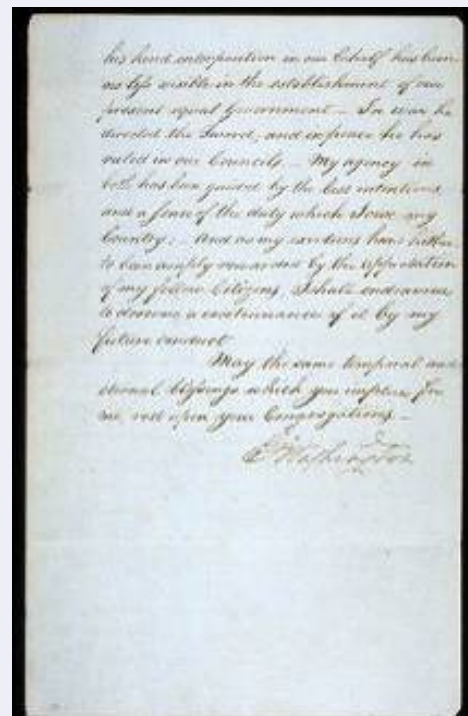 his kind interposition in our behalf has been
no less visible in the establishment of our
present equal Government — In war he
directed the Sword, and in peace he has
ruled in our Councils — My agency in
both has been guided by the best intentions
and a sense of the duty which I owe my
Country: And as my exertions have hither-
to been amply rewarded by the approbation
of my fellow Citizens, I shall endeavour
to deserve a continuance of it by my
future conduct
May the same temporal and
eternal blessings which you implore for
me, rest upon your Congregations —
Go Washington